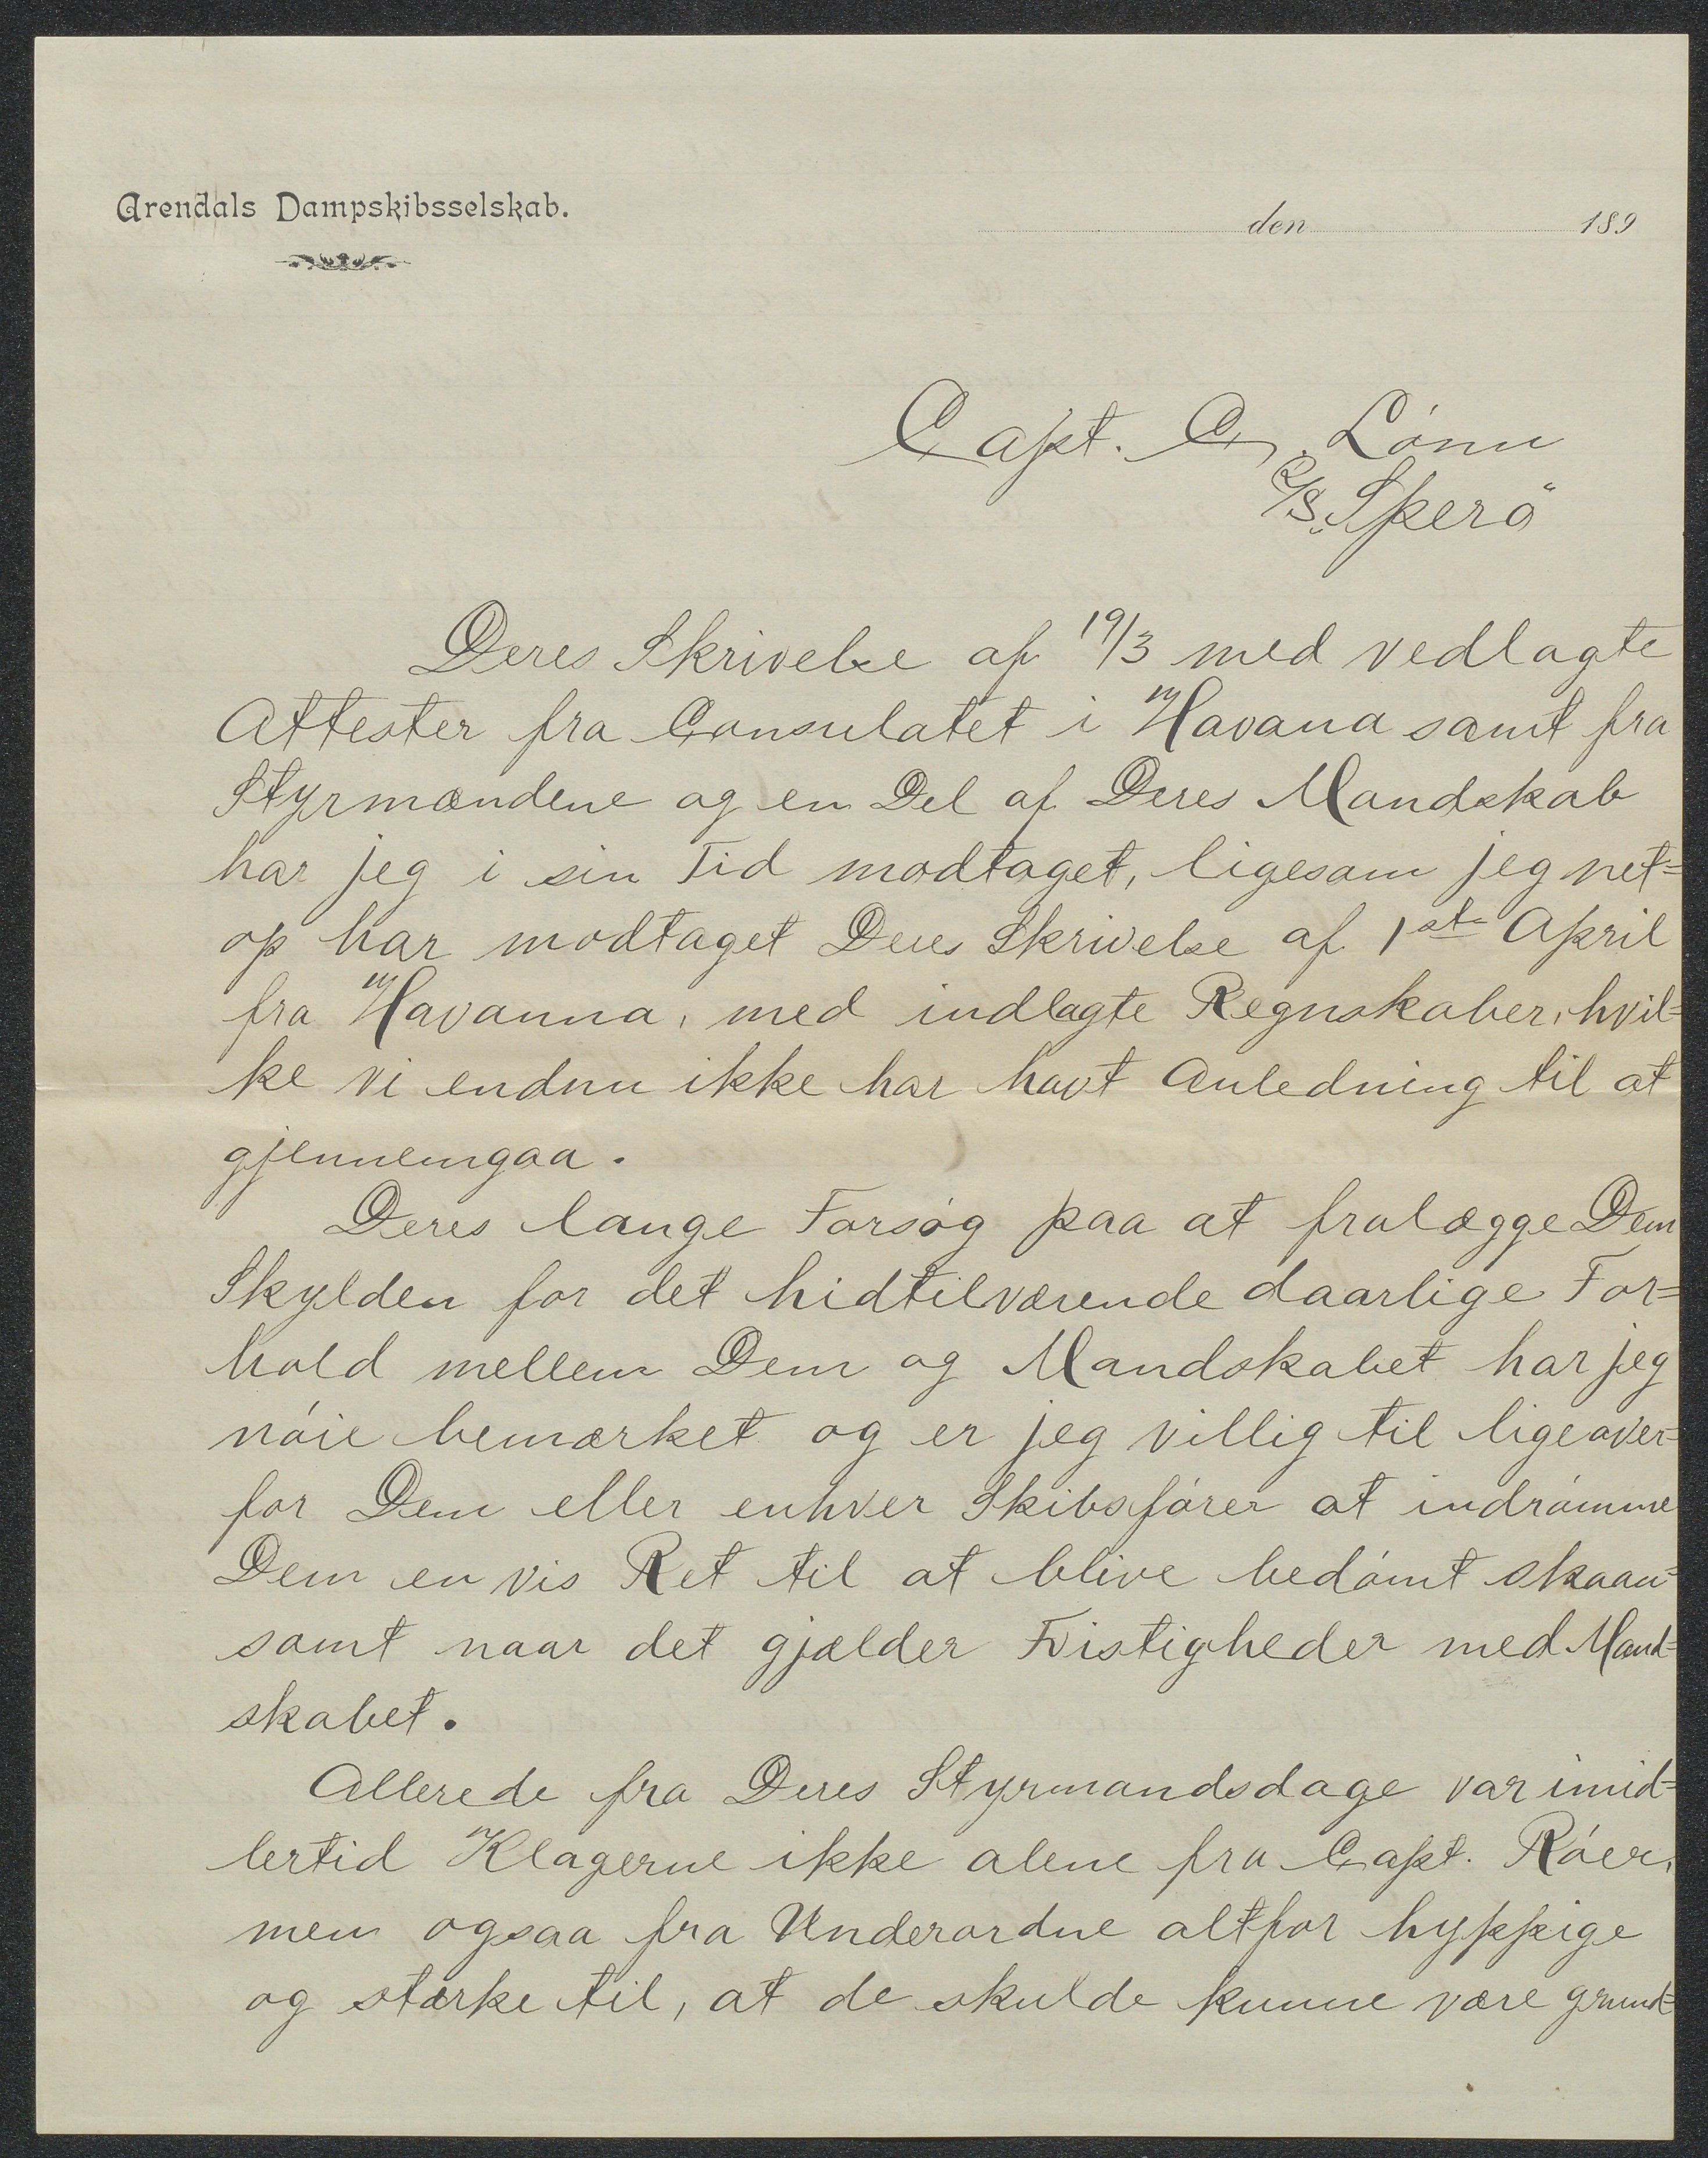 Arendals Dampskibsselskab.
den 189
Capt. C. Lónn
D/S. „Sperö“
Deres Skrivelse af 19/3 med vedlagte
Attester fra Consulatet i Havana samt fra
Styrmændene og en Del af Deres Mandskab
har jeg i sin Tid modtaget, ligesom jeg net=
op har modtaget Deres Skrivelse af 1ste April
fra Havanna, med indlagte Regnskaber, hvil=
ke vi endnu ikke har havt Anledning til at
gjennemgaa.
Deres lange Forsóg paa at fralægge Dem
Skylden for det hidtilværende daarlige For=
hold mellem Dem og Mandskabet har jeg
nóie bemærket og er jeg villig til ligeover=
for Dem eller enhver Skibsfórer at indrómme
Dem en vis Ret til at blive bedómt skaan=
somt naar det gjælder Tvistigheder med Mand=
skabet.
Allerede fra Deres Styrmandsdage var imid=
lertid Klagerne ikke alene fra Capt. Róer,
men ogsaa fra Underordne altfor hyppige
og stærke til, at de skulde kunne være grund=